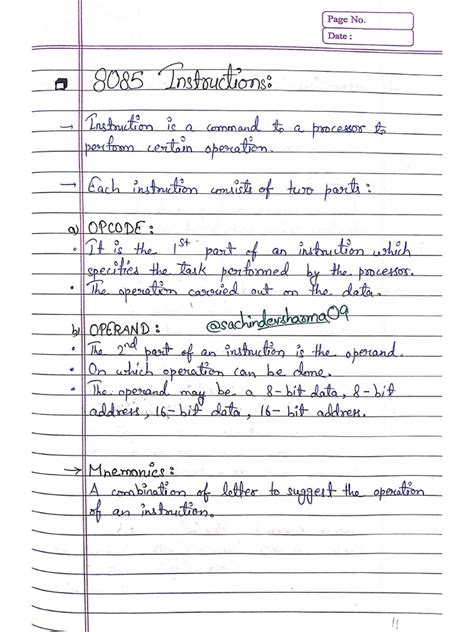 Page No.
Date :
8085 Instructions:
→ Instruction is a command to a processor to
perform certain operation.
→ Each instruction consists of two parts :
a) OPCODE :
• It is the 1st part of an instruction which
specifies the task performed by the processor.
• The operation carried out on the data.
@sachindersharma09
b) OPERAND :
• The 2nd part of an instruction is the operand.
• On which operation can be done.
• The operand may be a 8-bit data, 8-bit
address, 16-bit data, 16-bit address.
→ Mnemonics :
A combination of letter to suggest the operation
of an instruction.